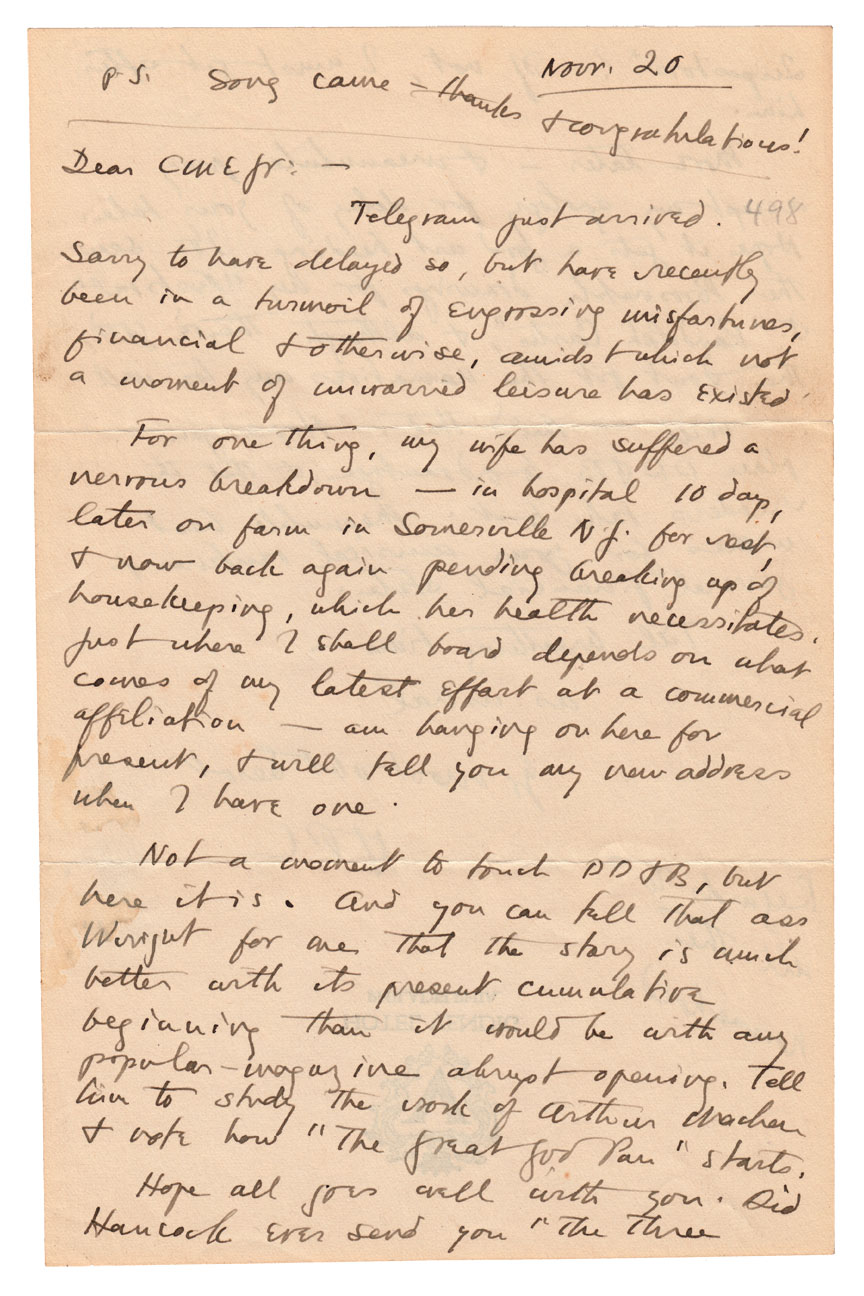 P.S. Song came – thanks & congratulations!
Nov. 20
Dear CMEJr: —
Telegram just arrived. 498
Sorry to have delayed so, but have recently
been in a turmoil of engrossing misfortunes,
financial & otherwise, amidst which not
a moment of unworried leisure has existed.
For one thing, my wife has suffered a
nervous breakdown — in hospital 10 days,
later on farm in Somerville N.J. for rest,
& now back again pending breaking up of
housekeeping, which her health necessitates.
Just where I shall board depends on what
comes of my latest effort at a commercial
affiliation — am hanging on here for
present, & will tell you my new address
when I have one.
Not a moment to touch DD&B, but
here it is. And you can tell that ass
Wright for me that the story is much
better with its present cumulative
beginning than it would be with any
popular-magazine abrupt opening. Tell
him to study the work of Arthur Machen
& note how "The Great God Pan" starts.
Hope all goes well with you. Did
Hancock ever send you "The Three